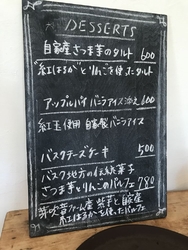 DESSERTS
自家産さつま芋のタルト 600
"紅はるか"とりんごを使ったタルト
アップルパイ バニラアイス添え 600
紅玉使用 自家製バニラアイス
バスクチーズケーキ 500
バスク地方の伝統菓子
さつま芋とりんごのパルフェ 780
農園 紫芋と自家産
紅はるかを使ったパルフェ